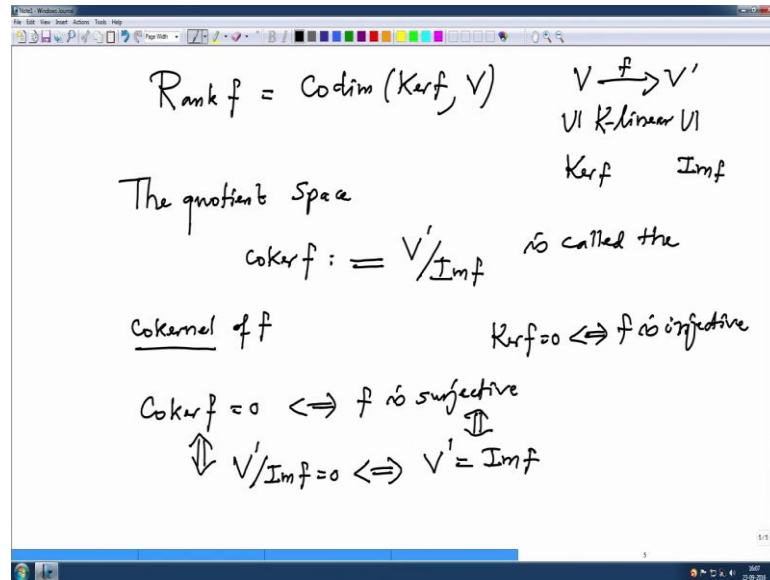 Note1 - Windows Journal
File Edit View Insert Actions Tools Help
Page Width
Rank f = Codim (Ker f, V)
V f→ V'
UI K-linear UI
Ker f Im f
The quotient space
coker f := V'/Im f is called the
cokernel of f
Ker f = 0 <=> f is injective
Coker f = 0 <=> f is surjective
⇕ V'/Im f = 0 <=> V' = Im f ⇕
5/5
5
16:07
23-09-2016